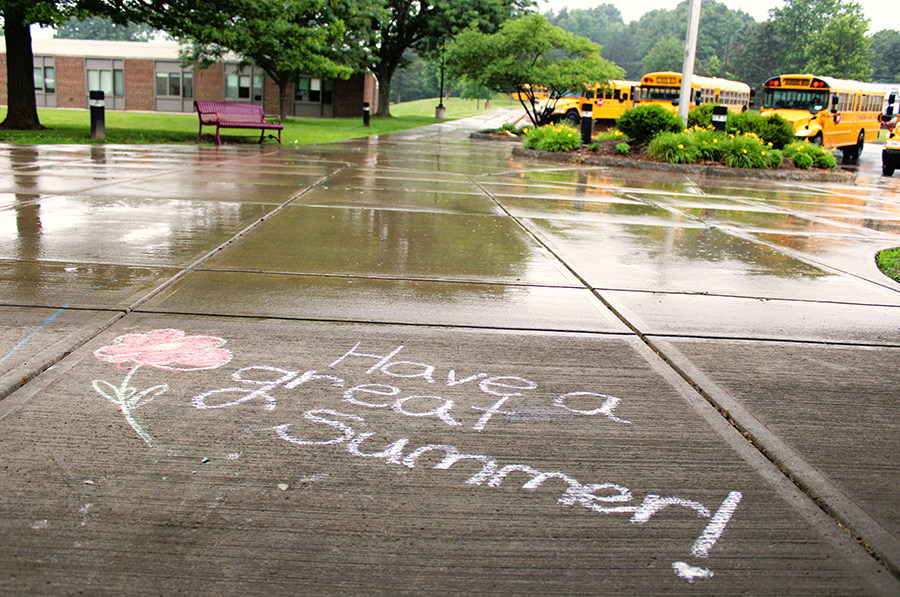 Have a
great
Summer!